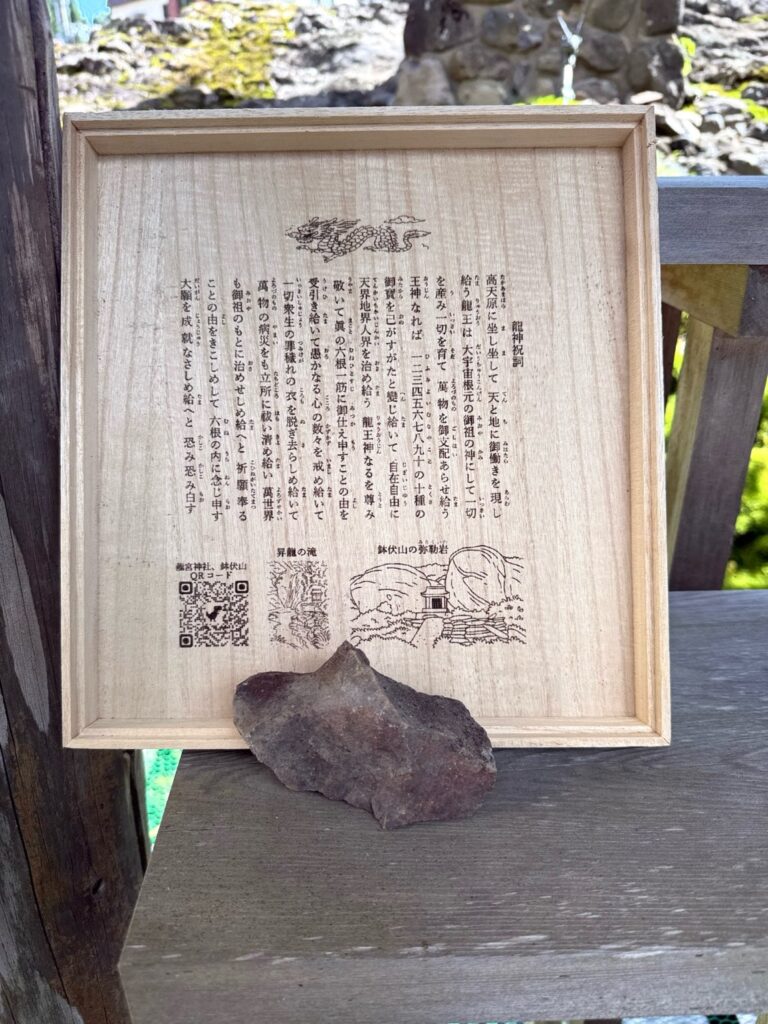 龍神祝詞
高天原に坐し坐して 天と地に御働きを現し
給う龍王は 大宇宙根元の御祖の神にして一切
を産み一切を育て 萬物を御支配あらせ給う
王神なれば 一二三四五六七八九十の十種の
御寶を己がすがたと變じ給いて 自在自由に
天界地界人界を治め給う 龍王神なるを尊み
敬いて 眞の六根一筋に御仕え申すことの由を
受引き給いて愚かなる心の数々を戒め給いて
一切衆生の罪穢れの衣を脱ぎ去らしめ給いて
萬物の病災をも立所に祓い清め給い 萬世界
も御祖のもとに治めせしめ給へと 祈願奉る
ことの由をきこしめして 六根の内に念じ申す
大願を成就なさしめ給へと 恐み恐み白す
鉢伏山の弥勒岩
昇龍の滝
龍宮神社、鉢伏山
QRコード